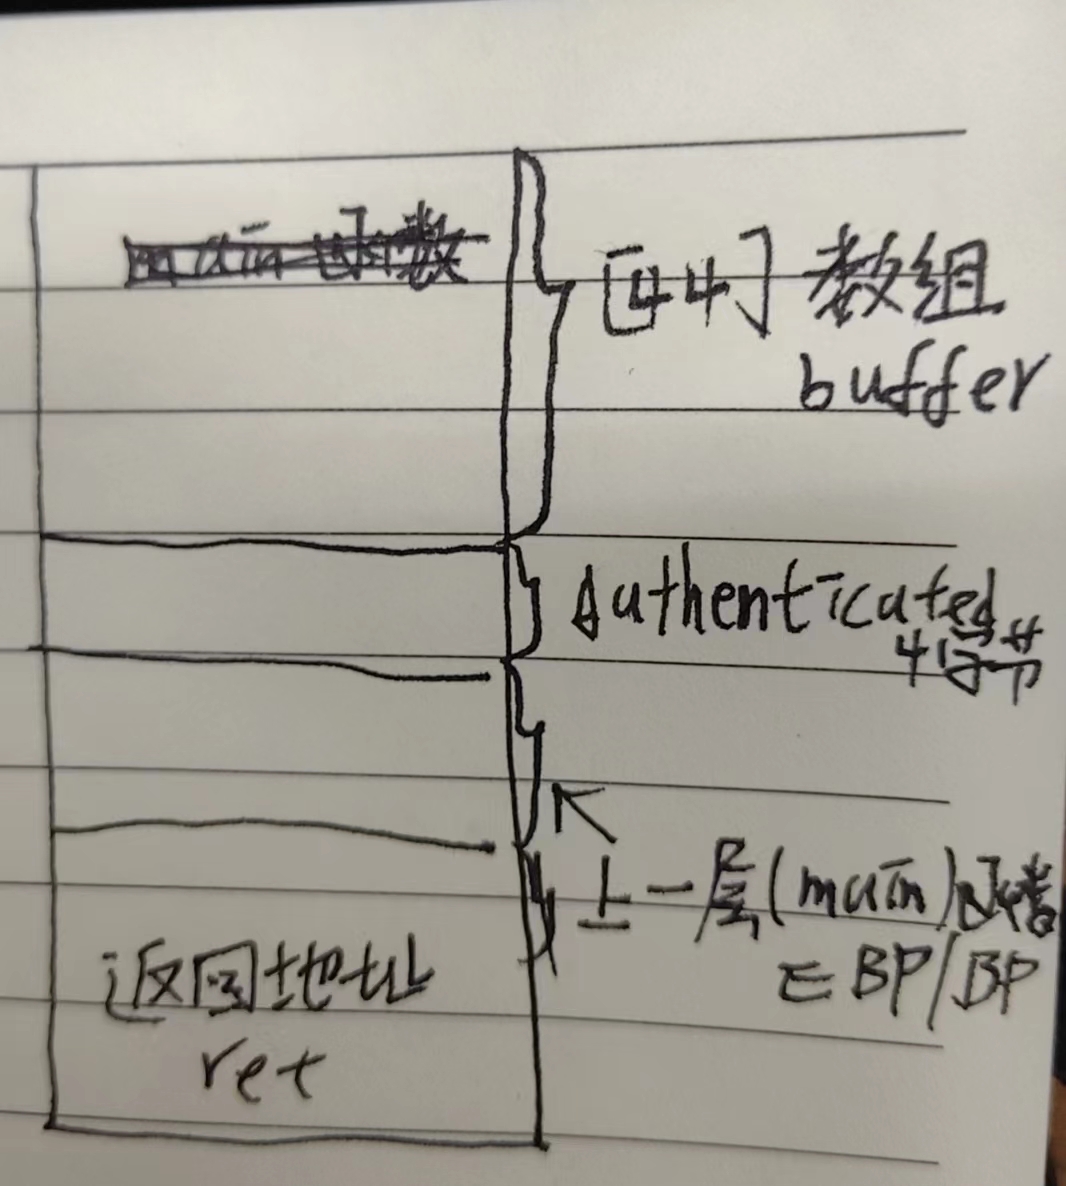 main函数
[44]数组
buffer
Authenticated
4字节
上一层(main)函数
EBP/BP
返回地址
ret